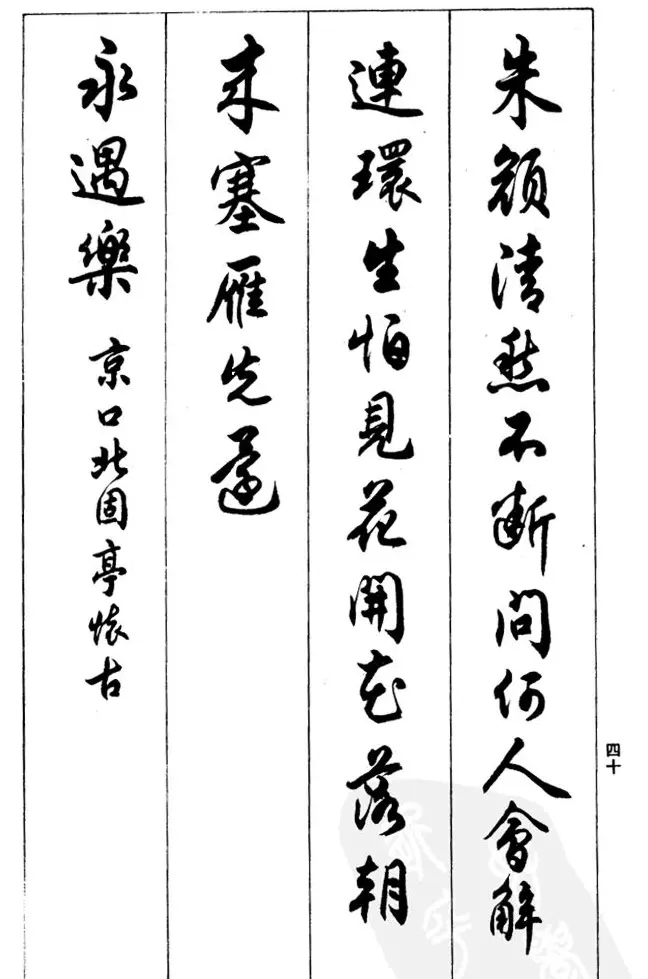 朱顏清愁不斷問何人會解
連環生怕見花開花落朝
來塞雁先還
永遇樂 京口北固亭懷古
四十